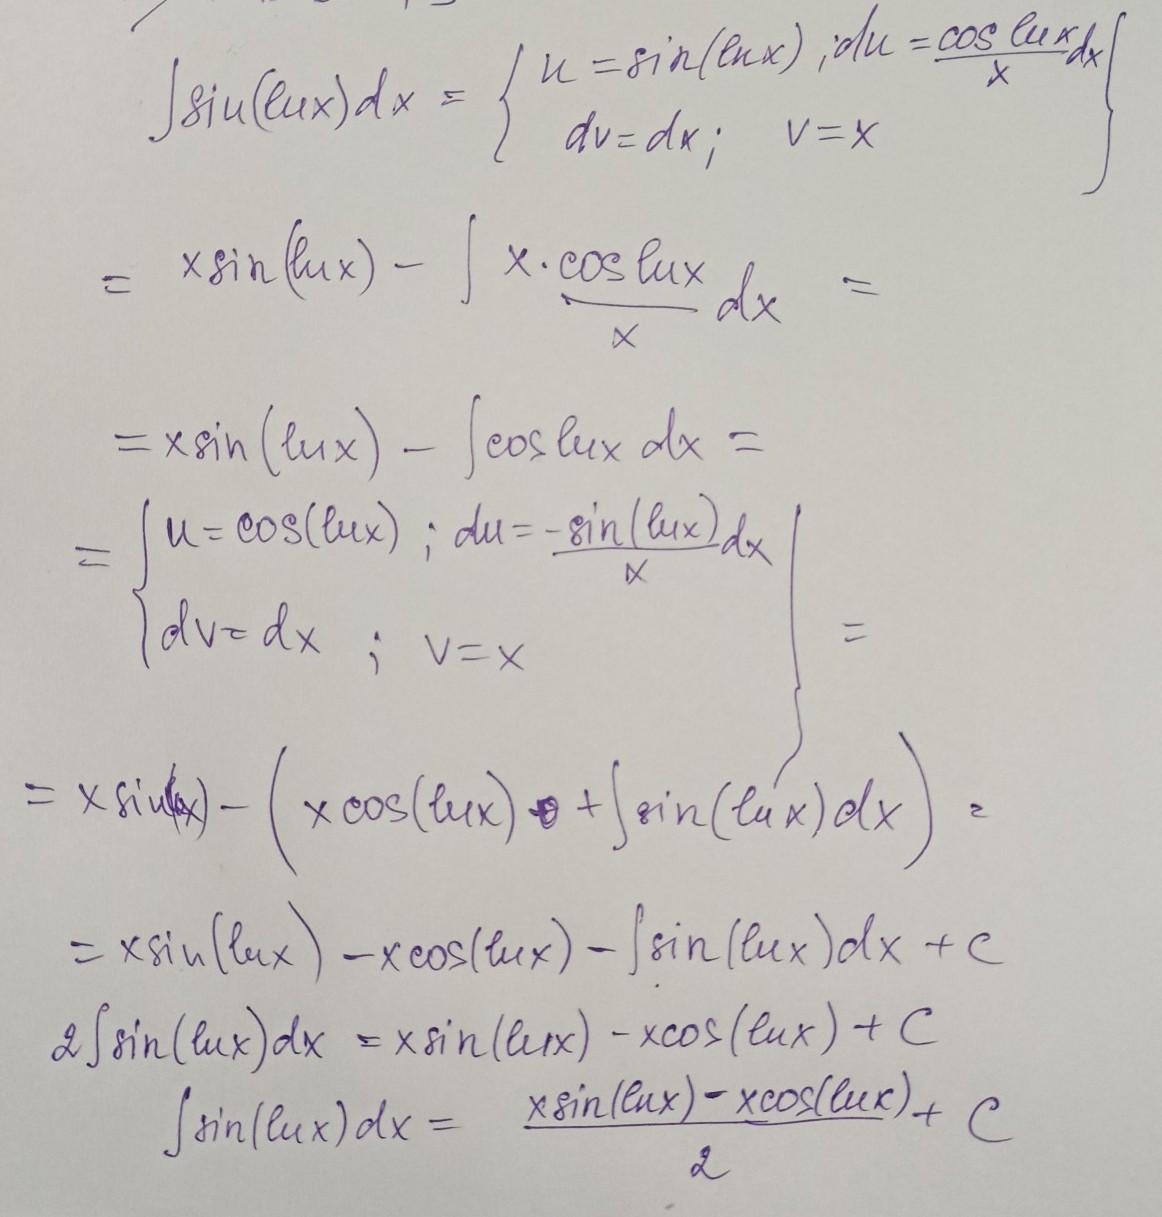 ∫sin(lnx)dx = { u = sin(lnx) ; du = cos lnx/x dx
dv = dx ; v = x }
= x sin(lnx) - ∫ x · cos lnx/x dx =
= x sin(lnx) - ∫cos lnx dx =
= { u = cos(lnx) ; du = -sin(lnx)/x dx
dv = dx ; v = x } =
= x sin(lnx) - ( x cos(lnx) + ∫sin(lnx)dx ) =
= x sin(lnx) - x cos(lnx) - ∫sin(lnx)dx + C
2∫sin(lnx)dx = x sin(lnx) - x cos(lnx) + C
∫sin(lnx)dx = x sin(lnx) - x cos(lnx)/2 + C